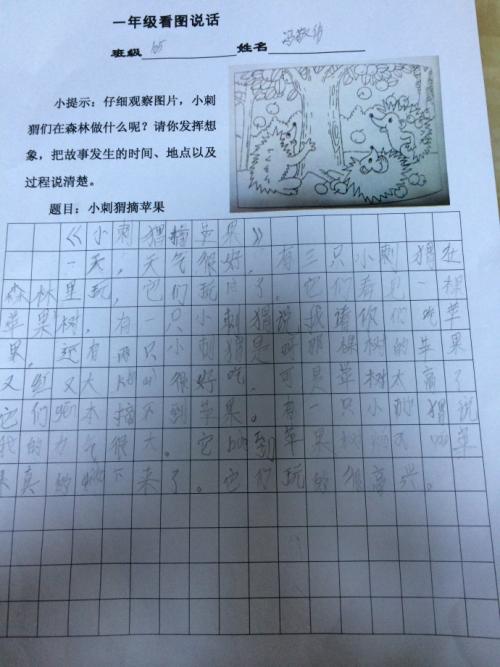 一年级看图说话
班级 姓名 冯
小提示：仔细观察图片，小刺
猬们在森林做什么呢？请你发挥想
象，把故事发生的时间、地点以及
过程说清楚。
题目：小刺猬摘苹果
《小刺猬摘苹果》
一天，天气很好，有三只小刺猬在
森林里玩，它们玩了，它们看见一棵
苹果树，有一只小刺猬说我请你们吃苹
果，还有两只小刺猬是那棵树的苹果
又红又大很好吃，可是苹树太高了
它们本摘不到苹果。有一只小刺猬说
我的力气很大。它到苹果苹
果真的下来了。它们玩的很高兴。